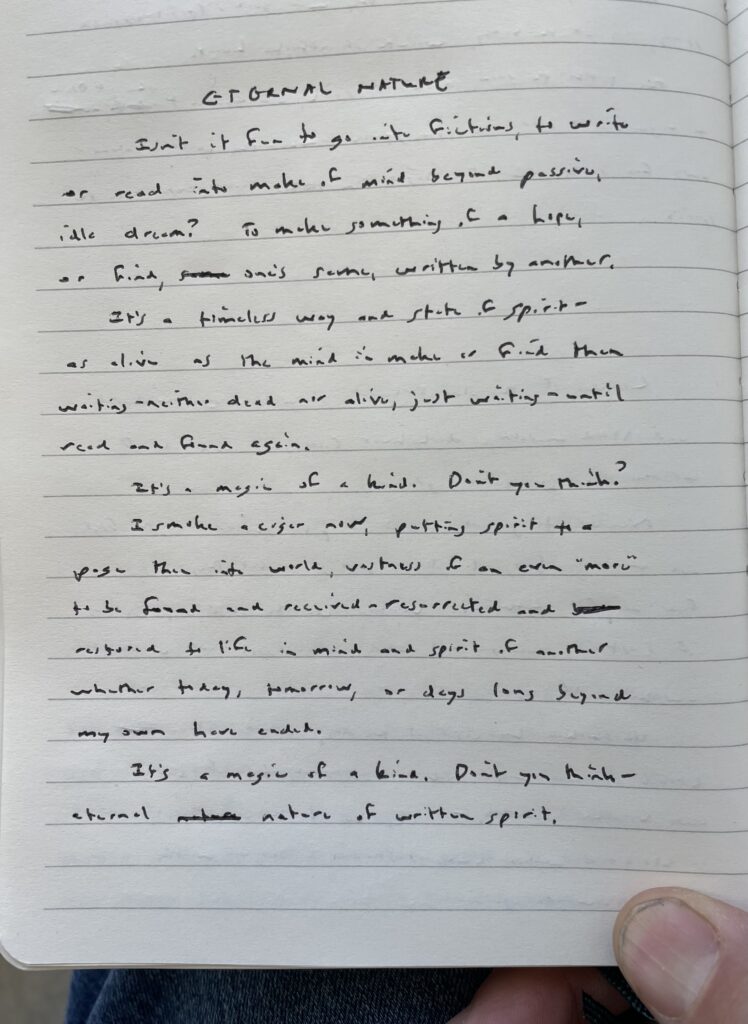 ETERNAL NATURE
Isn't it fun to go into fictions, to write
or read into make of mind beyond passive,
idle dream? To make something of a hope,
or find, one's same, written by another.
It's a timeless way and state of spirit-
as alive as the mind to make or find them
waiting-neither dead nor alive, just waiting-until
read and found again.
It's a magic of a kind. Don't you think?
I smoke a cigar now, putting spirit to a
page then into world, vastness of an even "more"
to be found and received-resurrected and
restored to life in mind and spirit of another
whether today, tomorrow, or days long beyond
my own have ended.
It's a magic of a kind. Don't you think-
eternal nature of written spirit.